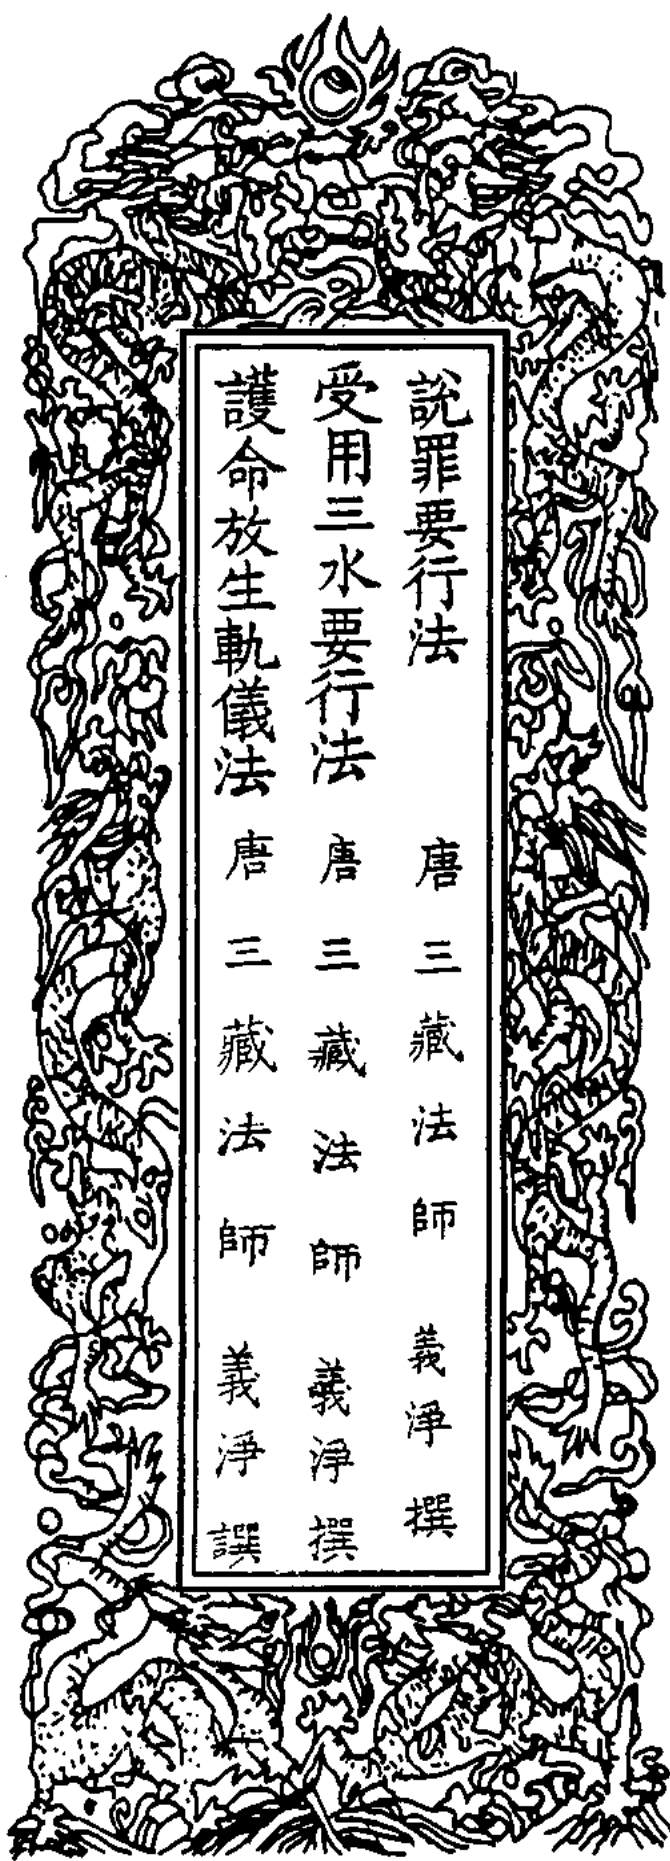 說罪要行法 唐三藏法師 義淨撰
受用三水要行法 唐三藏法師 義淨撰
護命放生軌儀法 唐三藏法師 義淨譔